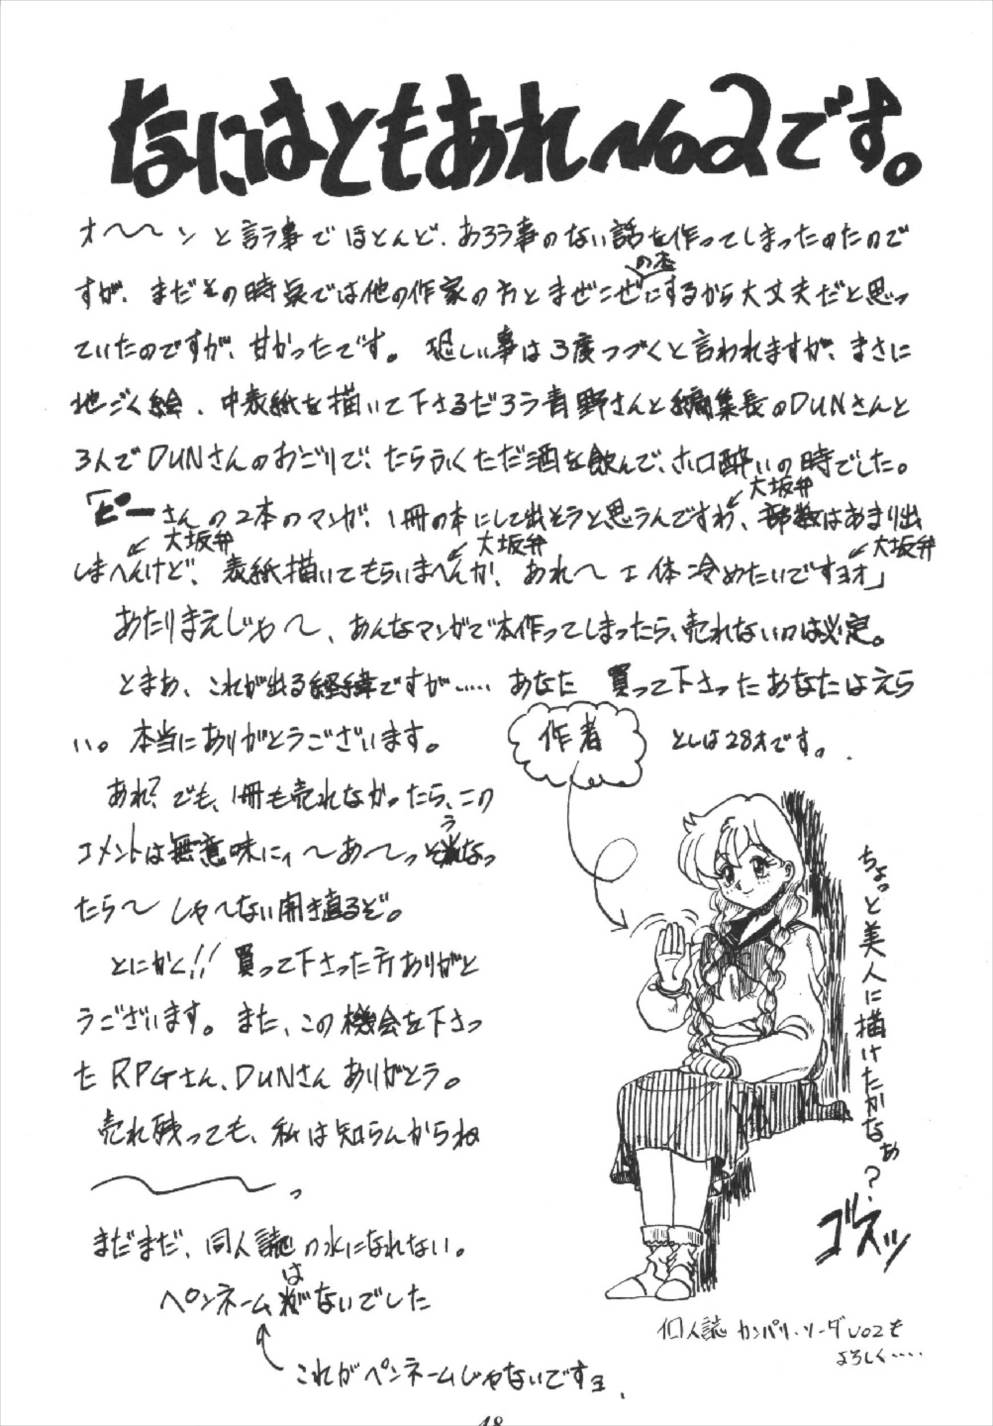 なにはともあれNo2です。
オ〜〜ンと言う事でほとんど、あろう事のない話を作ってしまったのたので
すが、まだその時点では他の作家の方とまぜこぜにするから大丈夫だと思っ
の本
ていたのですが、甘かったです。恐しい事は3度つづくと言われますが、まさに
地ごく絵、中表紙を描いて下さるだろう青野さんと編集長のDUNさんと
3人でDUNさんのおごりで、たらふくただ酒を飲んで、ホロ酔いの時でした。
「ピーさんの2本のマンガ、1冊の本にして出そうと思うんですわ、部数はあまり出
大坂弁
しまへんけど、表紙描いてもらいまへんか、あれ〜エ体冷めたいですヨオ」
大坂弁
大坂弁
大坂弁
あたりまえじゃ〜、あんなマンガで本作ってしまったら、売れないのは必定。
とまあ、これが出る経緯ですが……あなた 買って下さったあなたはえら
い。本当にありがとうございます。
あれ?でも、1冊も売れなかったら、この
コメントは無意味にィ〜あ〜っそうなっ
たら〜しゃ〜ない開き直るぞ。
とにかく!!買って下さった方ありがと
うございます。また、この機会を下さっ
たRPGさん、DUNさんありがとう。
売れ残っても、私は知らんからね
〜〜っ
まだまだ、同人誌の水になれない。
ペンネームはないでした
これがペンネームじゃないですョ、
作者
としは28才です。
ちょっと美人に描けたかなぁ?
ゴスッ
個人誌 カンパリ・ソーダVO2も
よろしく‥‥
18